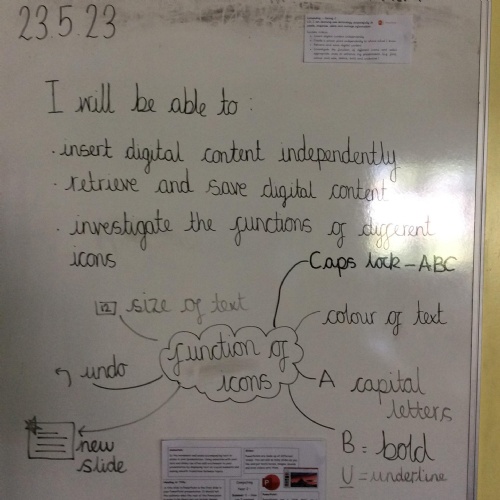 23.5.23
I will be able to:
· insert digital content independently
· retrieve and save digital content
· investigate the functions of different
icons
Caps lock - ABC
12 size of text
colour of text
function of
icons
undo
A capital
letters
new
slide
B = bold
U = underline